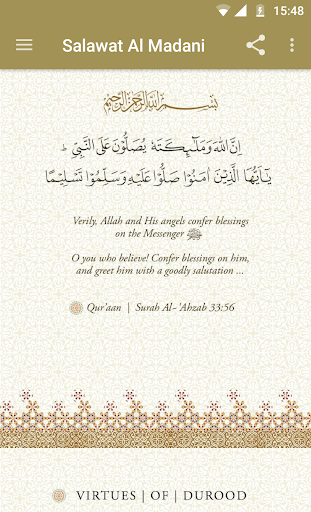 15:48
Salawat Al Madani
بِسْمِ اللهِ الرَّحْمٰنِ الرَّحِيْمِ
اِنَّ اللّٰهَ وَمَلٰٓئِكَتَهٗ يُصَلُّوْنَ عَلَى النَّبِيِّ ؕ
يٰۤاَيُّهَا الَّذِيْنَ اٰمَنُوْا صَلُّوْا عَلَيْهِ وَسَلِّمُوْا تَسْلِيْمًا
Verily, Allah and His angels confer blessings
on the Messenger ﷺ
O you who believe! Confer blessings on him,
and greet him with a goodly salutation ...
Qur'aan | Surah Al-'Ahzab 33:56
VIRTUES | OF | DUROOD